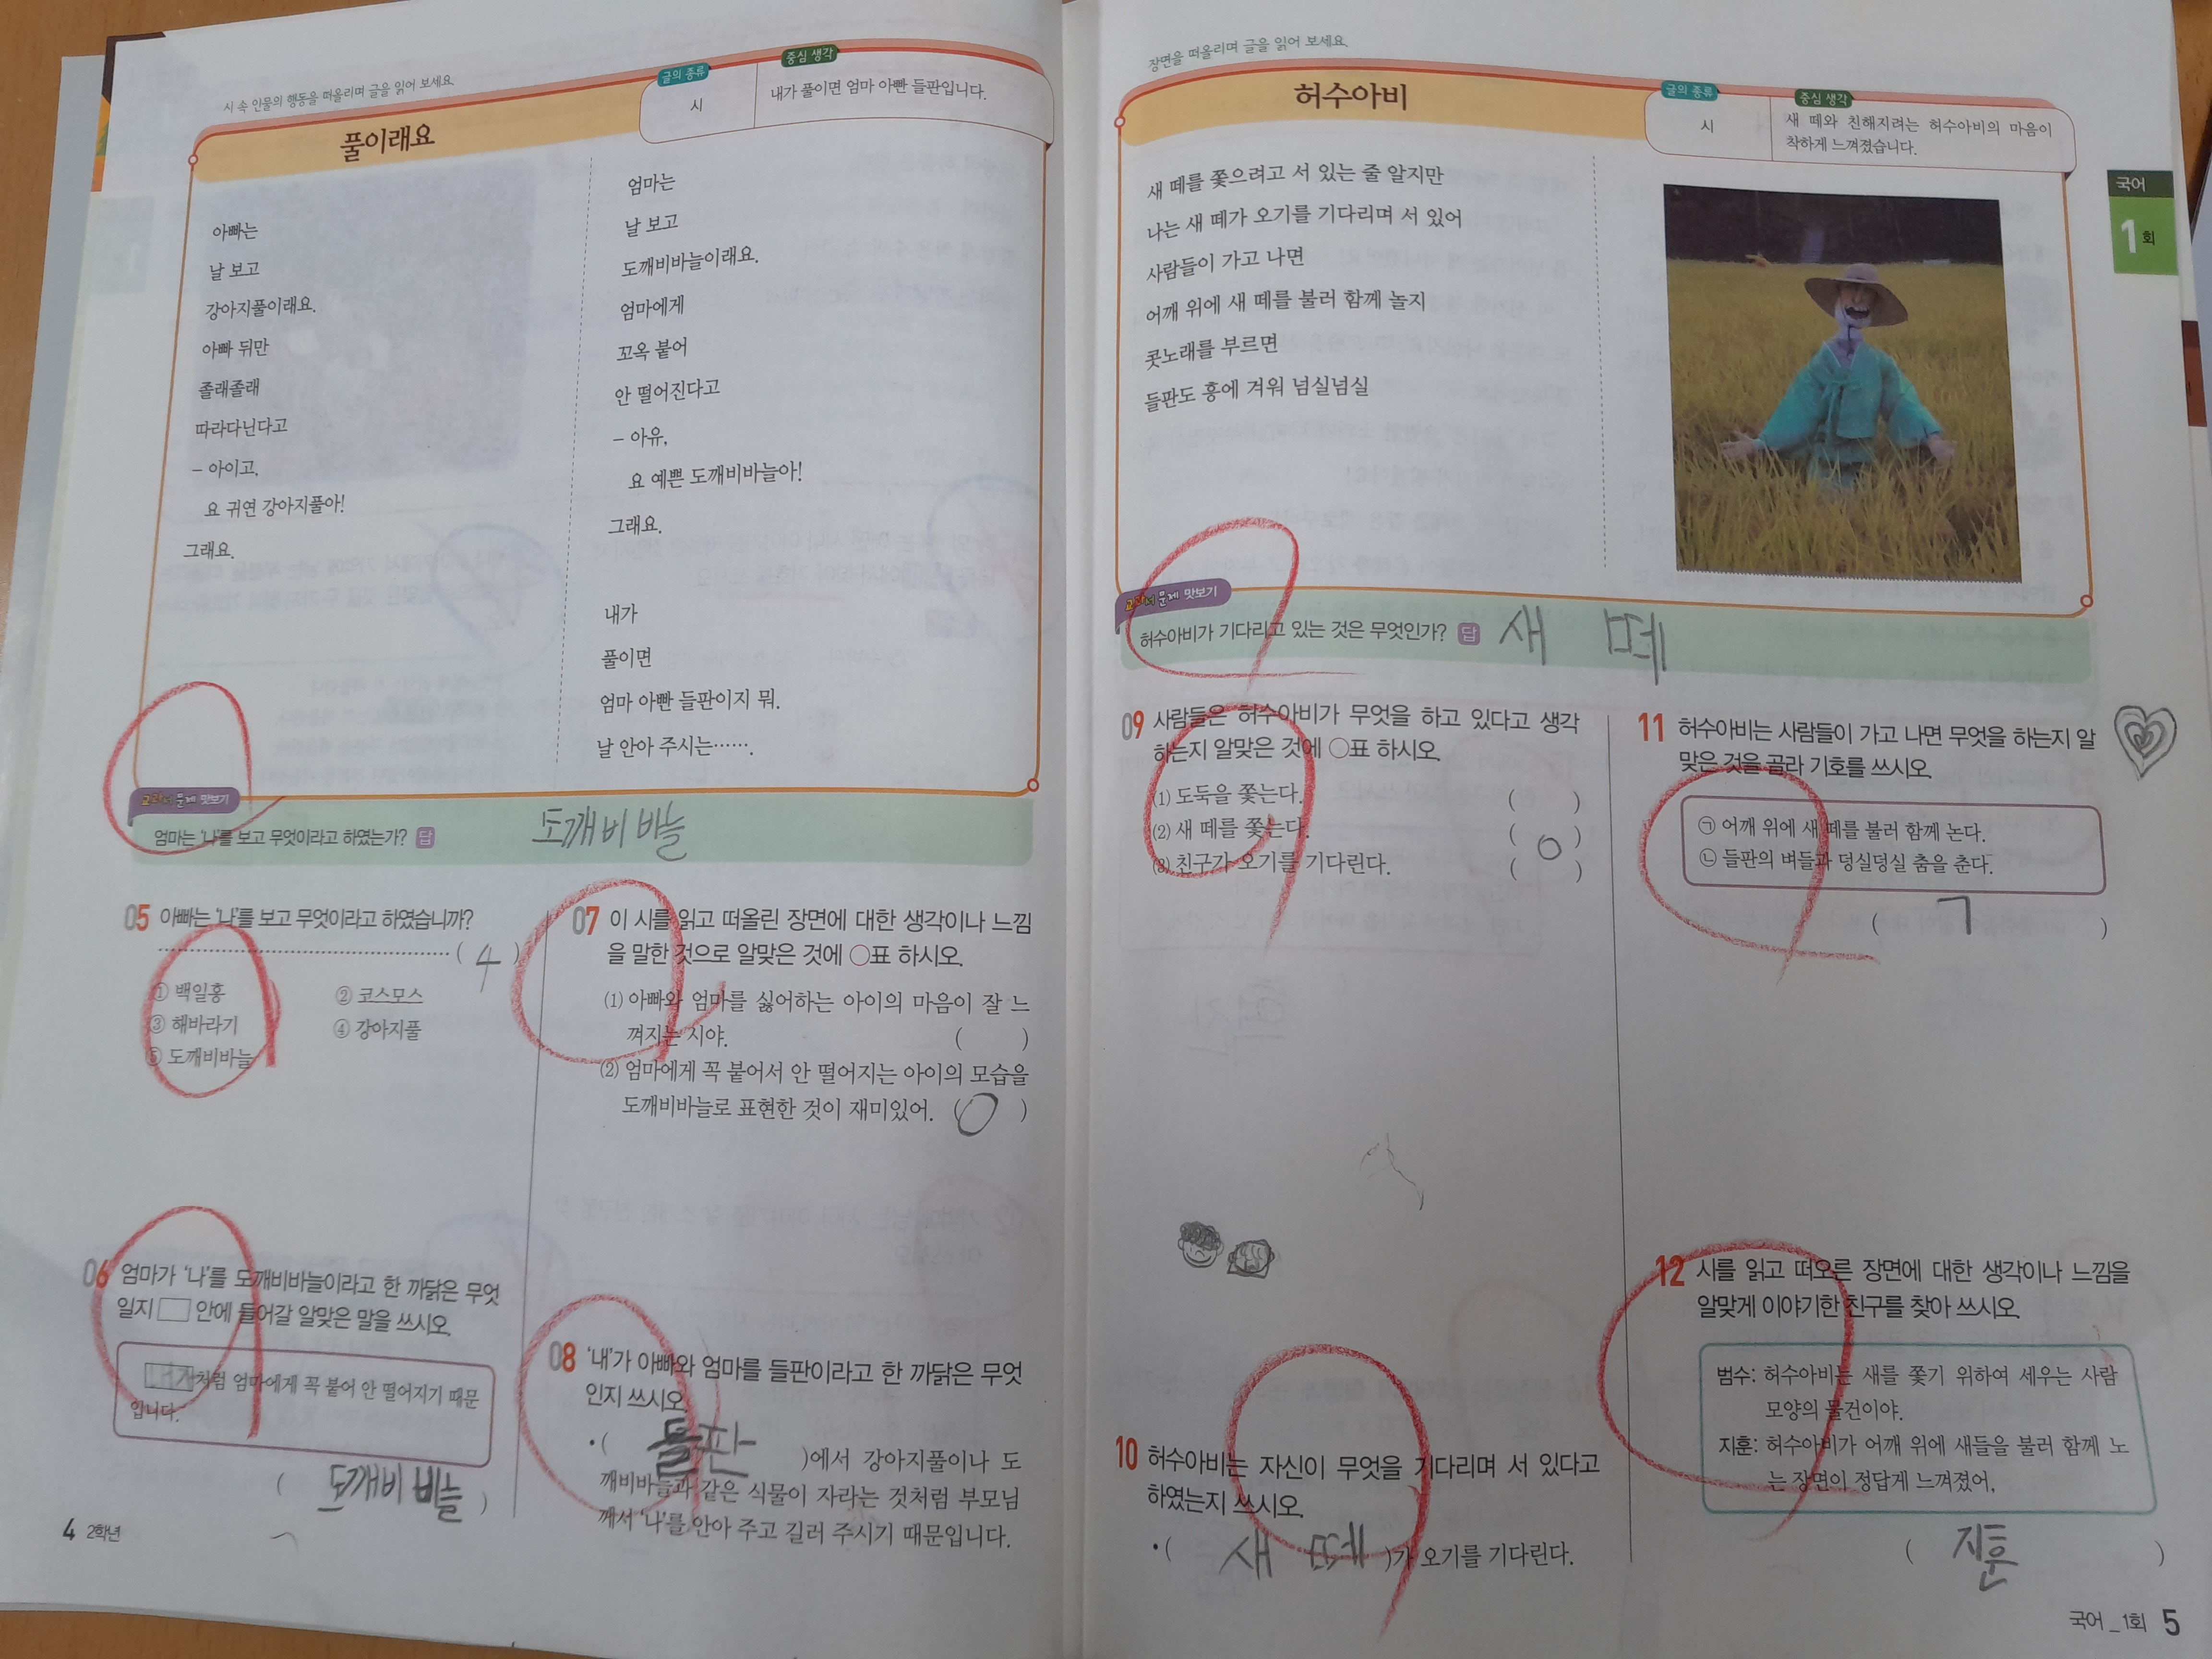 시 속 인물의 행동을 떠올리며 글을 읽어 보세요.
풀이래요
글의 종류
시
중심 생각
내가 풀이면 엄마 아빤 들판입니다.
아빠는
날 보고
강아지풀이래요.
아빠 뒤만
졸래졸래
따라다닌다고
– 아이고,
요 귀연 강아지풀아!
그래요.
엄마는
날 보고
도깨비바늘이래요.
엄마에게
꼬옥 붙어
안 떨어진다고
– 아유,
요 예쁜 도깨비바늘아!
그래요.
내가
풀이면
엄마 아빤 들판이지 뭐.
날 안아 주시는…….
교과서 문제 맛보기
엄마는 '나'를 보고 무엇이라고 하였는가? 답 도깨비바늘
05 아빠는 '나'를 보고 무엇이라고 하였습니까?
( 4 )
① 백일홍 ② 코스모스
③ 해바라기 ④ 강아지풀
⑤ 도깨비바늘
06 엄마가 '나'를 도깨비바늘이라고 한 까닭은 무엇
일지 □ 안에 들어갈 알맞은 말을 쓰시오.
처럼 엄마에게 꼭 붙어 안 떨어지기 때문
입니다.
( 도깨비 바늘 )
07 이 시를 읽고 떠올린 장면에 대한 생각이나 느낌
을 말한 것으로 알맞은 것에 ○표 하시오.
(1) 아빠와 엄마를 싫어하는 아이의 마음이 잘 느
껴지는 시야. ( )
(2) 엄마에게 꼭 붙어서 안 떨어지는 아이의 모습을
도깨비바늘로 표현한 것이 재미있어. ( ○ )
08 '내'가 아빠와 엄마를 들판이라고 한 까닭은 무엇
인지 쓰시오.
• ( 들판 )에서 강아지풀이나 도
깨비바늘과 같은 식물이 자라는 것처럼 부모님
께서 '나'를 안아 주고 길러 주시기 때문입니다.
4 2학년
장면을 떠올리며 글을 읽어 보세요.
허수아비
글의 종류
시
중심 생각
새 떼와 친해지려는 허수아비의 마음이
착하게 느껴졌습니다.
국어
1회
새 떼를 쫓으려고 서 있는 줄 알지만
나는 새 떼가 오기를 기다리며 서 있어
사람들이 가고 나면
어깨 위에 새 떼를 불러 함께 놀지
콧노래를 부르면
들판도 흥에 겨워 넘실넘실
교과서 문제 맛보기
허수아비가 기다리고 있는 것은 무엇인가? 답 새 떼
09 사람들은 허수아비가 무엇을 하고 있다고 생각
하는지 알맞은 것에 ○표 하시오.
(1) 도둑을 쫓는다. ( )
(2) 새 떼를 쫓는다. ( ○ )
(3) 친구가 오기를 기다린다. ( )
10 허수아비는 자신이 무엇을 기다리며 서 있다고
하였는지 쓰시오.
• ( 새 떼 )가 오기를 기다린다.
11 허수아비는 사람들이 가고 나면 무엇을 하는지 알
맞은 것을 골라 기호를 쓰시오.
㉠ 어깨 위에 새 떼를 불러 함께 논다.
㉡ 들판의 벼들과 덩실덩실 춤을 춘다.
( ㄱ )
12 시를 읽고 떠오른 장면에 대한 생각이나 느낌을
알맞게 이야기한 친구를 찾아 쓰시오.
범수: 허수아비는 새를 쫓기 위하여 세우는 사람
모양의 물건이야.
지훈: 허수아비가 어깨 위에 새들을 불러 함께 노
는 장면이 정답게 느껴졌어.
( 지훈 )
국어_1회 5